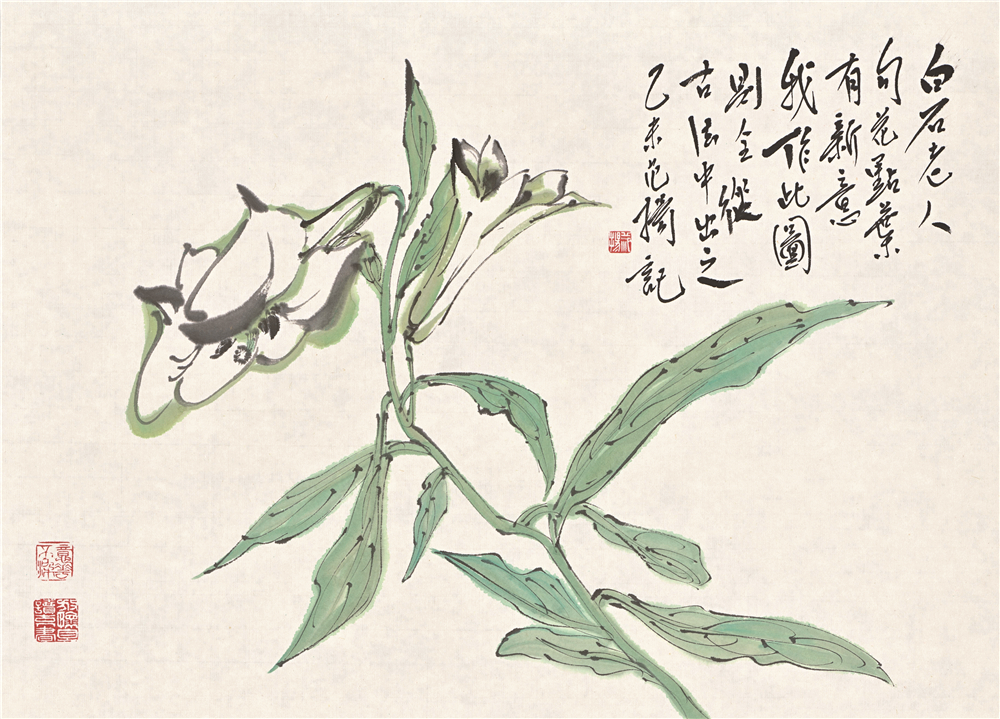 白石老人
句花點葉
有新意
我作此圖
則全從
古法中出之
乙未范揚記